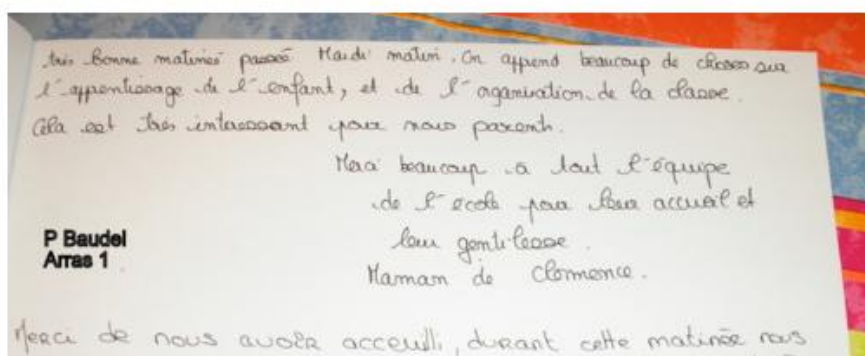 très bonne matinée passée Mardi matin. On apprend beaucoup de choses sur
l'apprentissage de l'enfant, et de l'organisation de la classe.
Cela est très interessant pour nous parents.
Merci beaucoup a tout l'équipe
de l'école pour leur accueil et
leur gentilesse.
Maman de Clemence.
P Baudel
Arras 1
Merci de nous avoir acceuilli, durant cette matinée nous